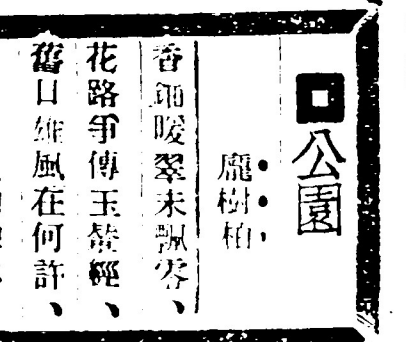 公園
龐樹柏
香鈿暖翠未飄零、
花路爭傳玉輦經、
舊日雄風在何許、